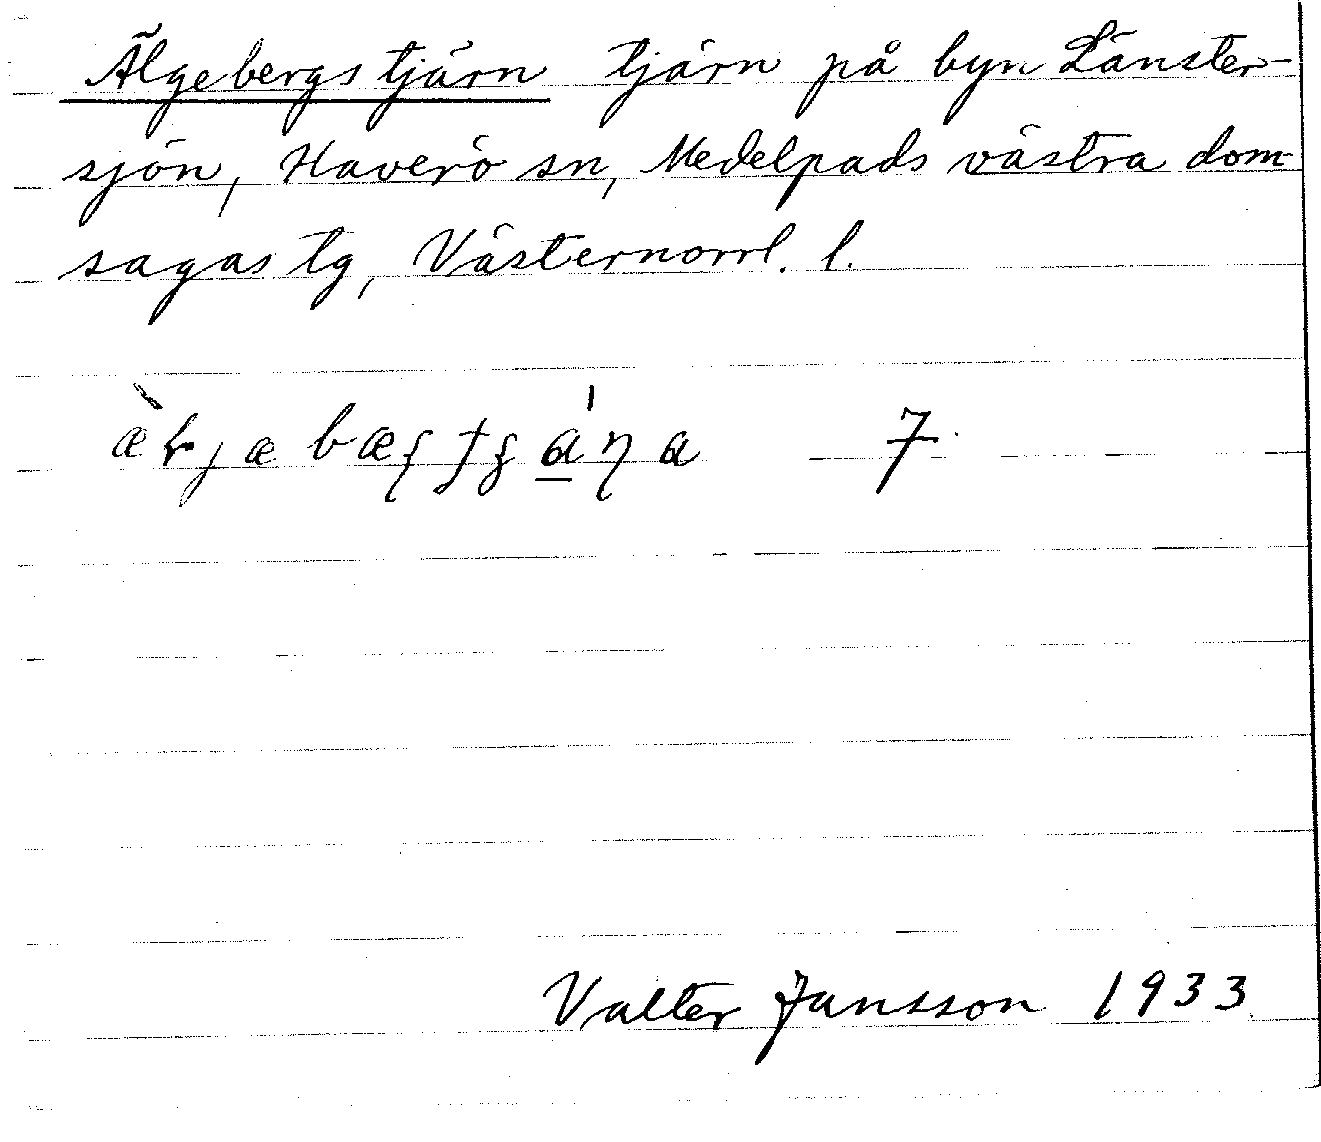 Älgebergstjärn tjärn på byn Länster-
sjön, Haverö sn, Medelpads västra dom-
sagas tg, Västernorrl. l.
7
Valter Jansson 1933